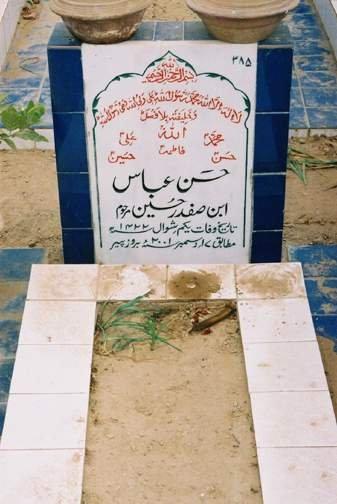 ۳۸۵
بسم اللہ الرحمن الرحیم
لا الہ الا اللہ محمد رسول اللہ علی ولی اللہ وصی رسول اللہ
و خلیفتہ بلا فصل
محمدؐ اللہ علیؑ
حسنؑ فاطمہؑ حسینؑ
حسن عباس
ابن صفدر حسین مرحوم
تاریخ وفات یکم شوال ۱۴۲۲ھ
مطابق ۱۷ دسمبر ۲۰۰۱ء بروز پیر